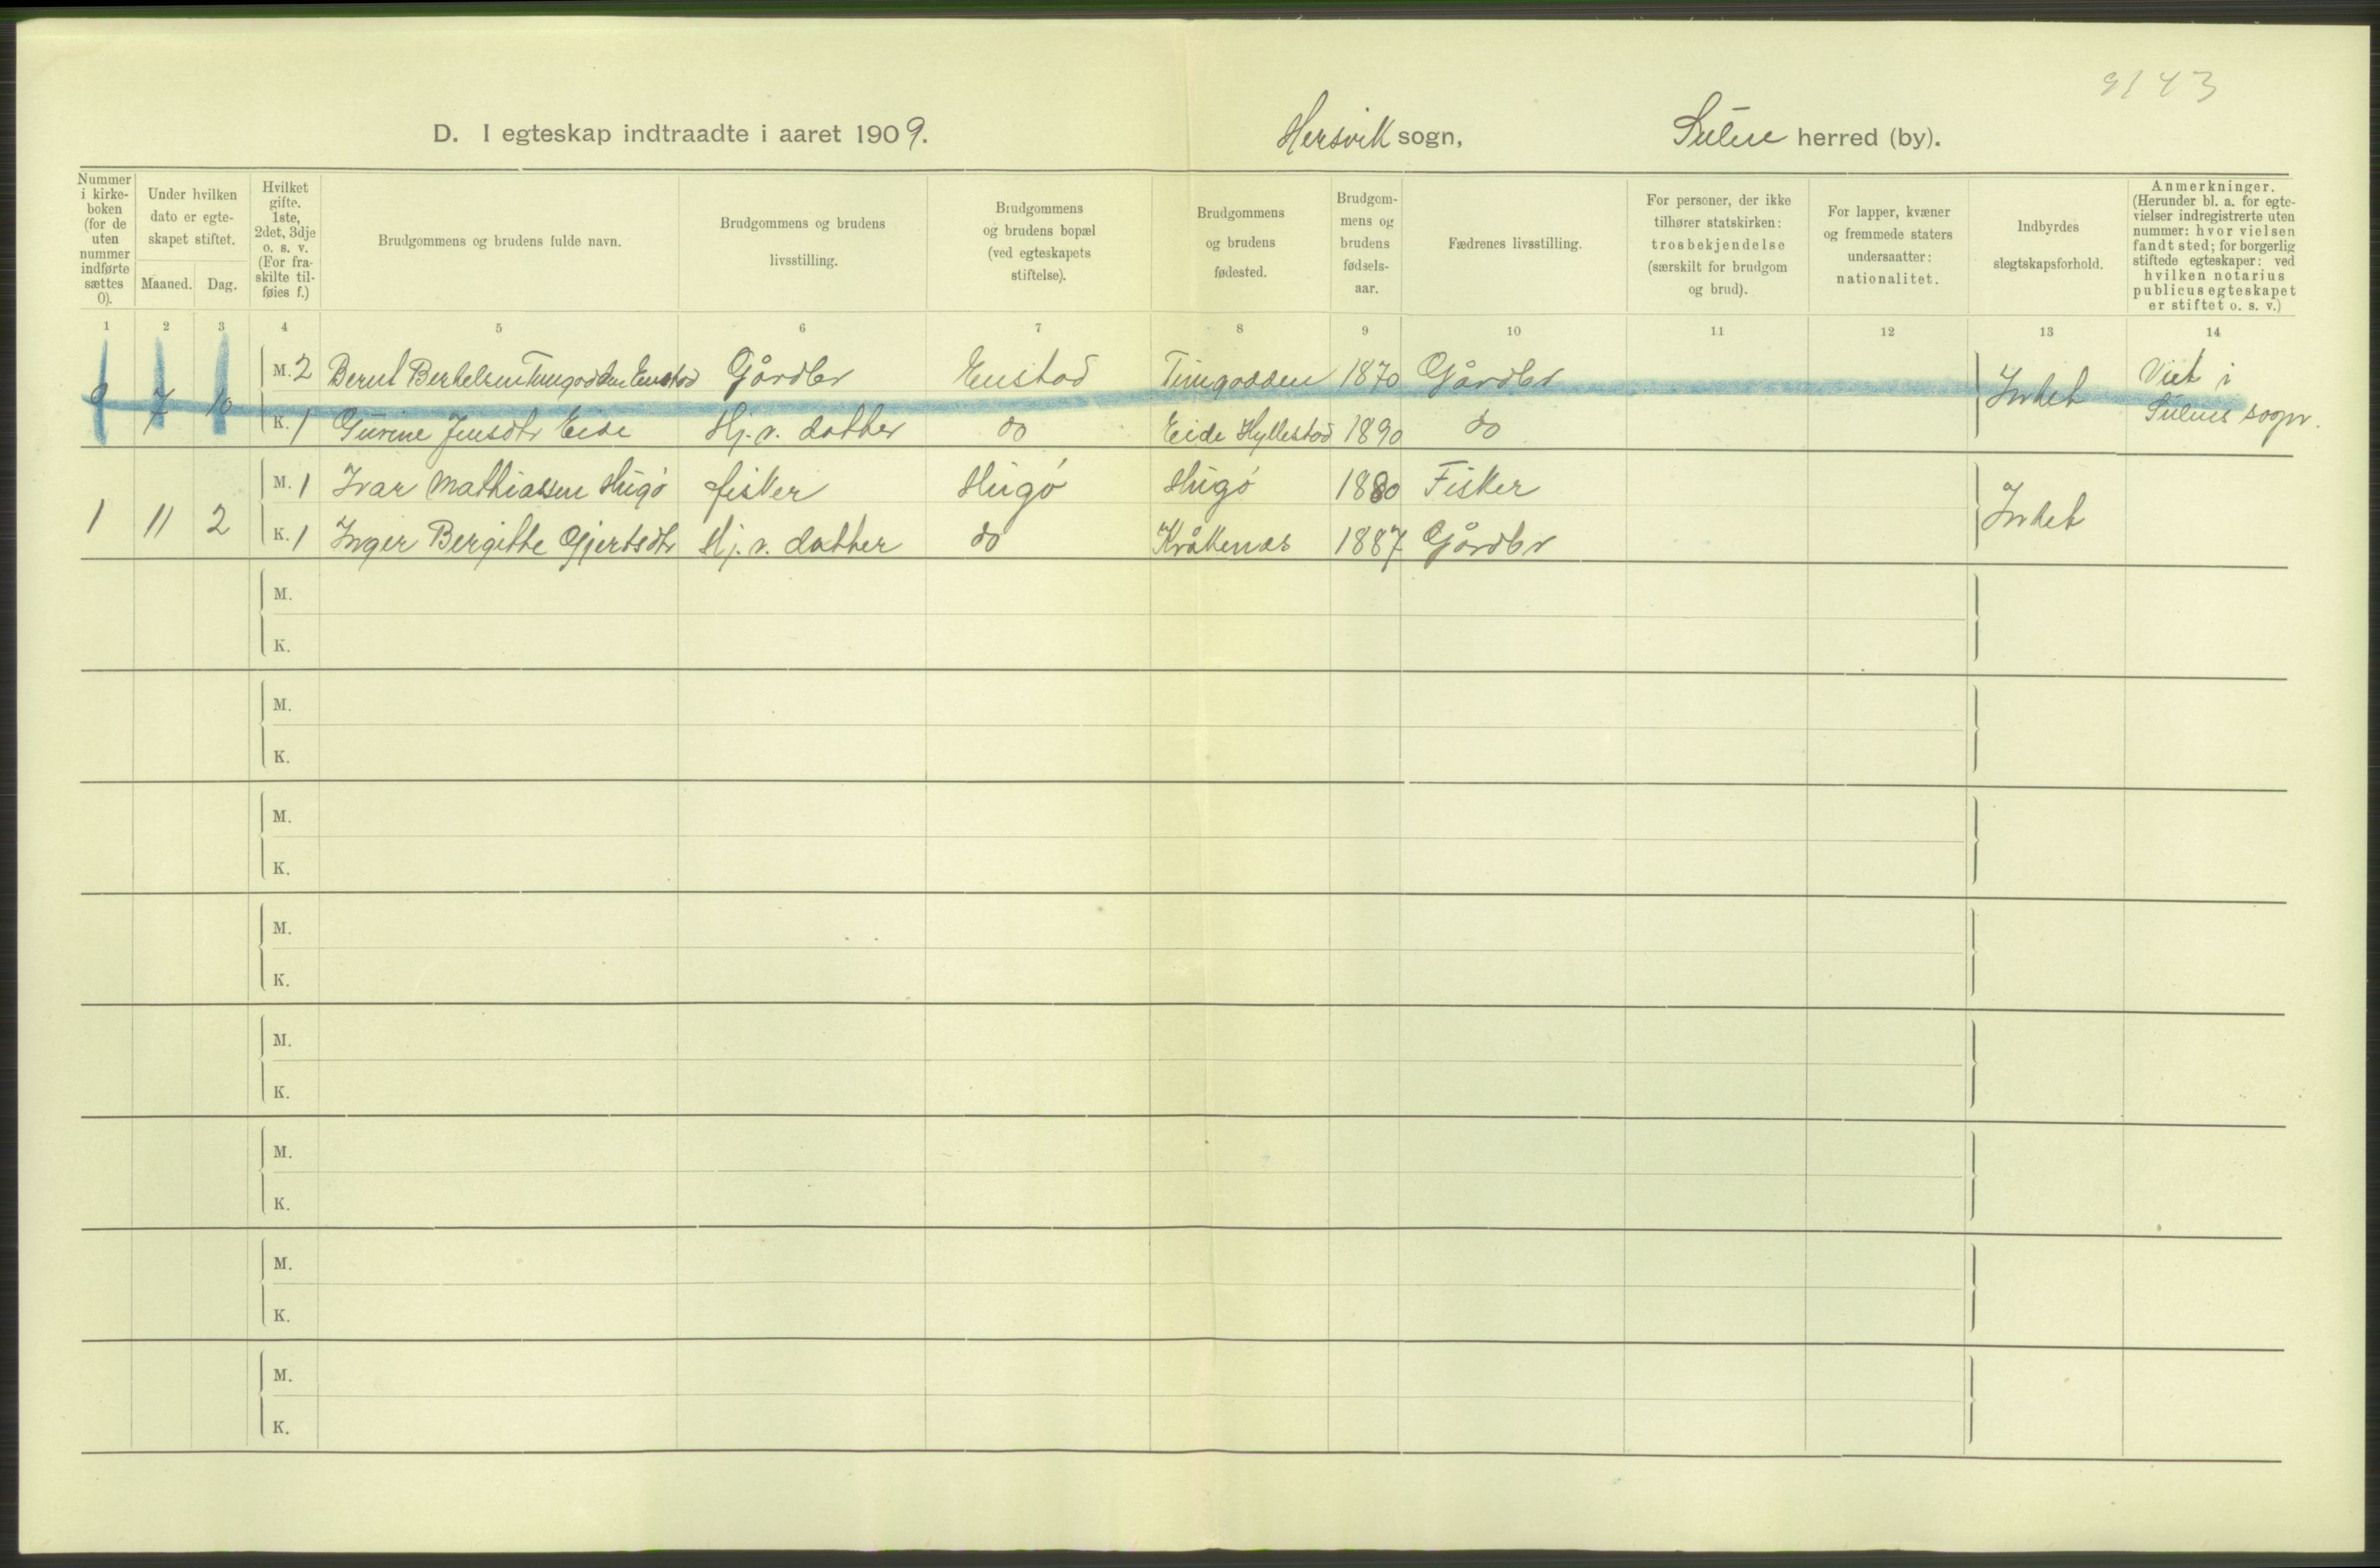 9143
D. I egteskap indtraadte i aaret 1909. Hersvik sogn, Sulen herred (by).
Nummer i kirke-boken (for de uten nummer indførte sættes 0).
Under hvilken dato er egte-skapet stiftet.
Maaned. Dag.
Hvilket gifte. 1ste, 2det, 3dje o. s. v. (For fra-skilte til-føies f.)
Brudgommens og brudens fulde navn.
Brudgommens og brudens livsstilling.
Brudgommens og brudens bopæl (ved egteskapets stiftelse).
Brudgommens og brudens fødested.
Brudgom-mens og brudens fødsels-aar.
Fædrenes livsstilling.
For personer, der ikke tilhører statskirken: trosbekjendelse (særskilt for brudgom og brud).
For lapper, kvæner og fremmede staters undersaatter: nationalitet.
Indbyrdes slegtskapsforhold.
Anmerkninger. (Herunder bl. a. for egte-vielser indregistrerte uten nummer: hvor vielsen fandt sted; for borgerlig stiftede egteskaper: ved hvilken notarius publicus egteskapet er stiftet o. s. v.)
1 2 3 4 5 6 7 8 9 10 11 12 13 14
M. 2 Bernt Bertelsen Tungodden Enstad Gårdbr Enstad Tungodden 1870 Gårdbr
9 7 10 Intet Viet i
K. 1 Gurine Jensdtr Eide Hj. v. datter do Eide Hyllestad 1890 do Sulens sogn.
M. 1 Ivar Mathiassen Hugø fisker Hugø Hugø 1880 Fisker
1 11 2 Intet
K. 1 Inger Bergitte Gjertsdtr Hj. v. datter do Kråkenes 1887 Gårdbr
M.
K.
M.
K.
M.
K.
M.
K.
M.
K.
M.
K.
M.
K.
M.
K.